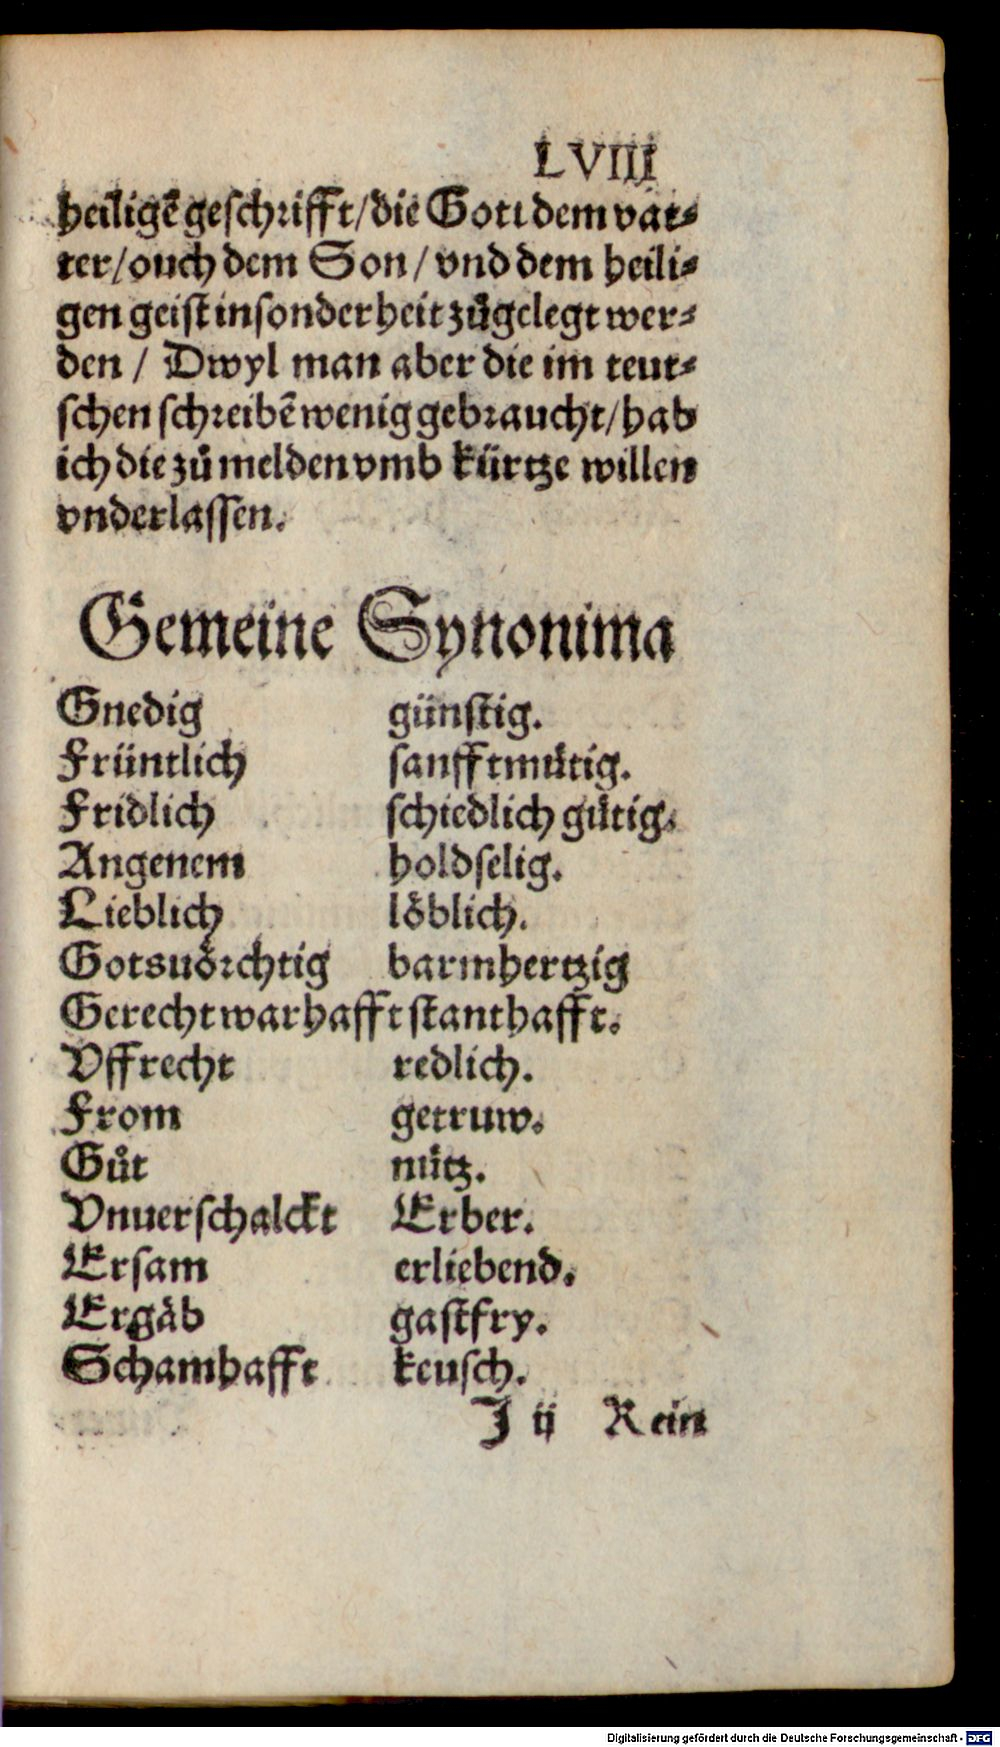 LVIII
heiligē geschrifft/die Gott dem vat⸗
ter/ouch dem Son/vnd dem heili⸗
gen geist insonderheit zůgelegt wer⸗
den/ Dwyl man aber die im teut⸗
schen schreibē wenig gebraucht/hab
ich die zů melden vmb kürtze willen
vnderlassen.
Gemeine Synonima
Gnedig günstig.
Früntlich sanfftmütig.
Fridlich schiedlich gütig.
Angenem holdselig.
Lieblich löblich.
Gotsuörchtig barmhertzig
Gerecht warhafft stanthafft.
Vffrecht redlich.
From getruw.
Gůt nütz.
Vnuerschalckt Erber.
Ersam erliebend.
Ergäb gastfry.
Schamhafft keusch.
J ij Rein
Digitalisierung gefördert durch die Deutsche Forschungsgemeinschaft - DFG